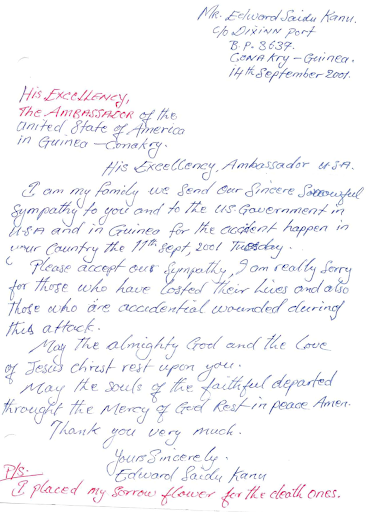 Mr. Edward Saidu Kanu.
c/o Dixinn port
B.P. 3637.
Conakry - Guinea.
14th September 2001.
His Excellency,
The Ambassador of the
United State of America
in Guinea - Conakry.
His Excellency, Ambassador U.S.A.
I am my family we send our sincere sorrowful
sympathy to you and to the US Government in
U.S.A and in Guinea for the accident happen in
your Country the 11th Sept, 2001 Tuesday.
Please accept our sympathy, I am really sorry
for those who have losted their lives and also
those who are accidential wounded during
this attack.
May the almighty God and the love
of Jesus christ rest upon you.
May the souls of the faithful departed
throught the Mercy of God Rest in peace Amen.
Thank you very much.
Yours Sincerely.
Edward Saidu Kanu
P/s.
I placed my sorrow flower for the death ones.